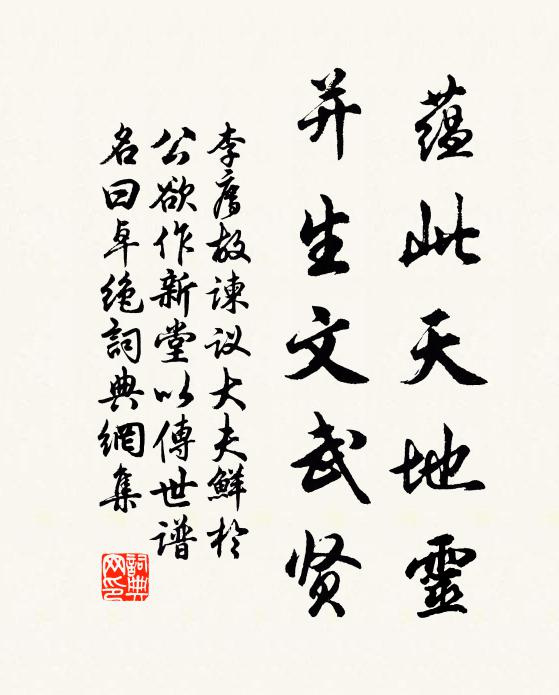 蕴此天地靈
并生文武贤
李廌故諫议大夫鮮於
公欲作新堂以傳世谱
名曰卓絶詞典網集
詞典网印